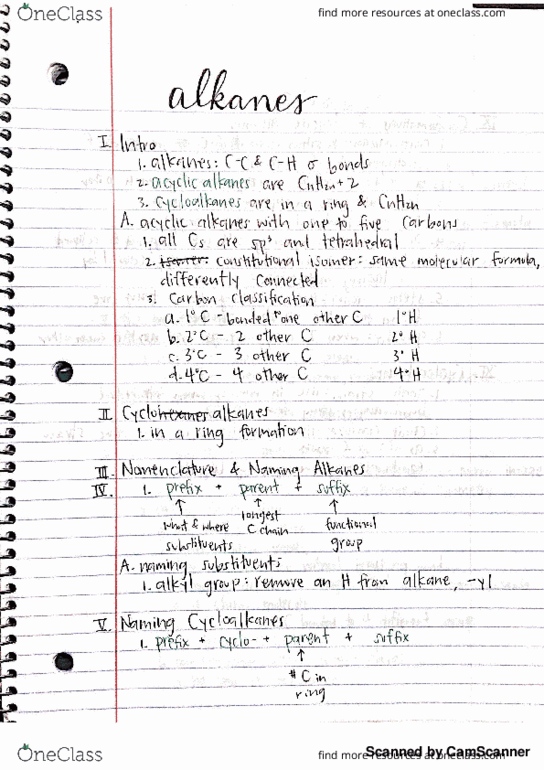 OneClass
find more resources at oneclass.com
alkanes
I. Intro
1. alkanes: C-C & C-H σ bonds
2. acyclic alkanes are CnH2n+2
3. cycloalkanes are in a ring & CnH2n
A. acyclic alkanes with one to five carbons
1. all Cs are sp³ and tetrahedral
2. isomer: constitutional isomer: same molecular formula,
differently connected
3. Carbon classification
a. 1°C - bonded to one other C 1°H
b. 2°C - 2 other C 2° H
c. 3°C - 3 other C 3° H
d. 4°C - 4 other C 4° H
II. Cyclohexanes alkanes
1. in a ring formation
III. Nomenclature & Naming Alkanes
IV. 1. prefix + parent + suffix
↑ ↑ ↑
what & where longest functional
substituents C chain group
A. naming substituents
1. alkyl group: remove an H from alkane, -yl
V. Naming Cycloalkanes
1. prefix + cyclo- + parent + suffix
↑
# C in
ring
OneClass
find more resources at oneclass.com
Scanned by CamScanner